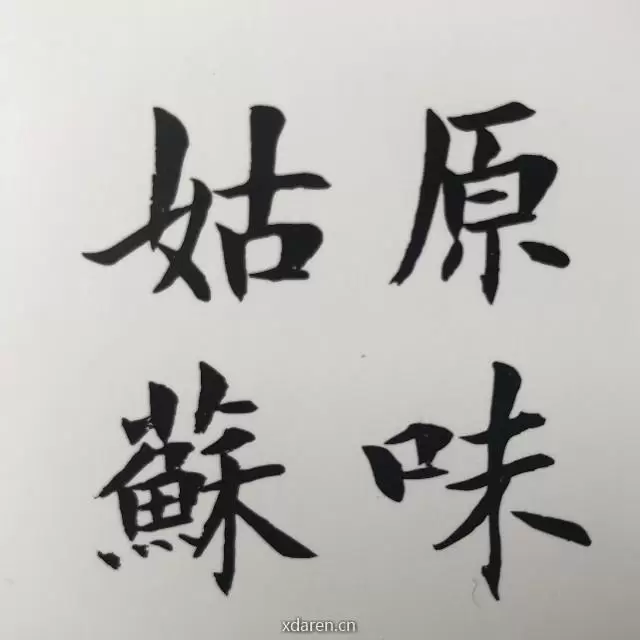 原味
姑蘇
xdaren.cn